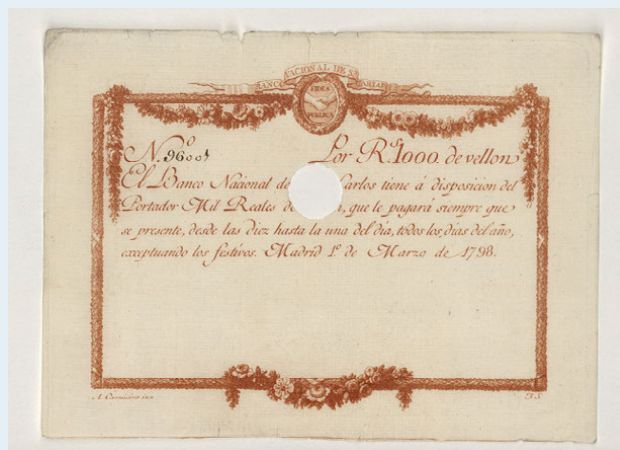 BANCO NACIONAL DE Sn. CARLOS
FIDES
PUBLICA
No. 96001 Por Rs. 1000. de vellon
El Banco Nacional de Carlos tiene á disposicion del
Portador Mil Reales de n, que le pagará siempre que
se presente, desde las diez hasta la una del dia, todos los dias del año,
exceptuando los festivos. Madrid 1º. de Marzo de 1798.